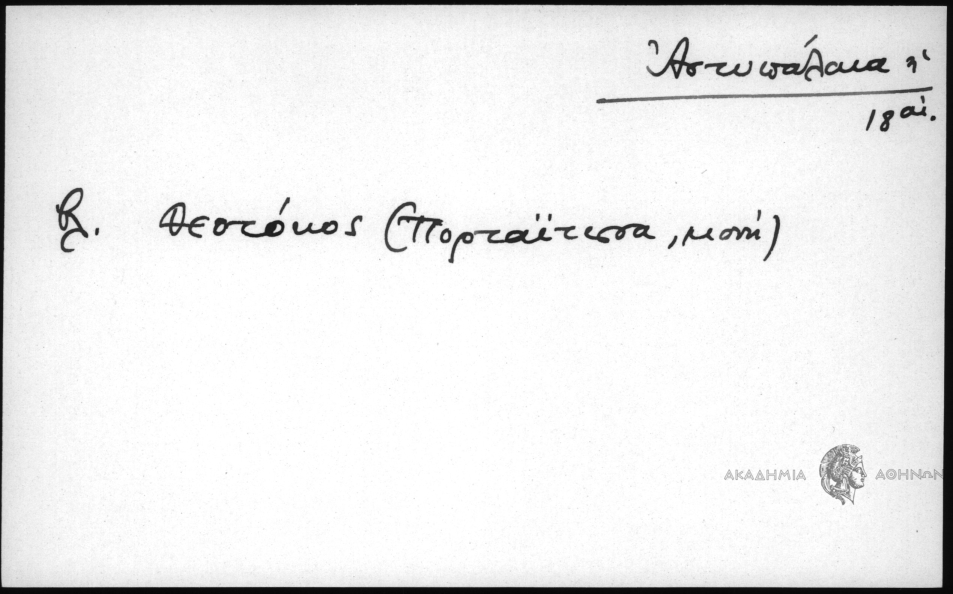 Ἀστυπάλαια ἡ
18 αἰ.
βλ. Θεοτόκος (Πορταΐτισσα, μονή)
ΑΚΑΔΗΜΙΑ ΑΘΗΝΩΝ